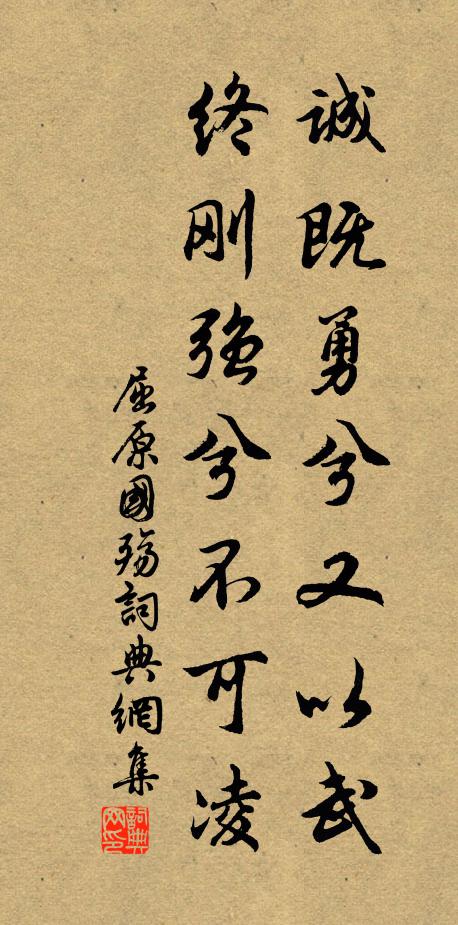 誠既勇兮又以武
终刚强兮不可凌
屈原國殤詞典網集
詞典网印